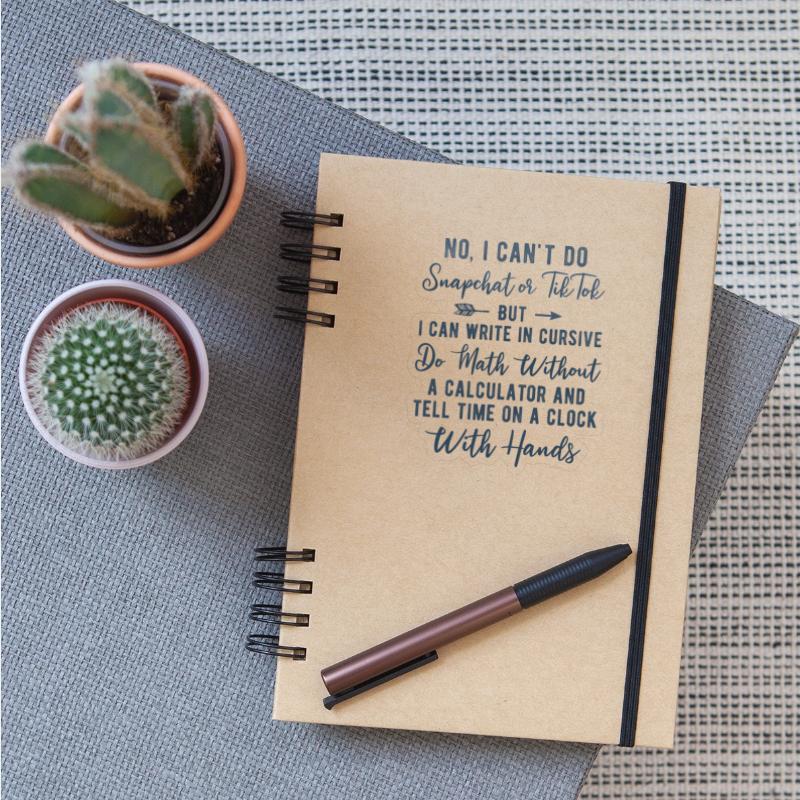 NO, I CAN'T DO
Snapchat or TikTok
BUT
I CAN WRITE IN CURSIVE
Do Math Without
A CALCULATOR AND
TELL TIME ON A CLOCK
With Hands